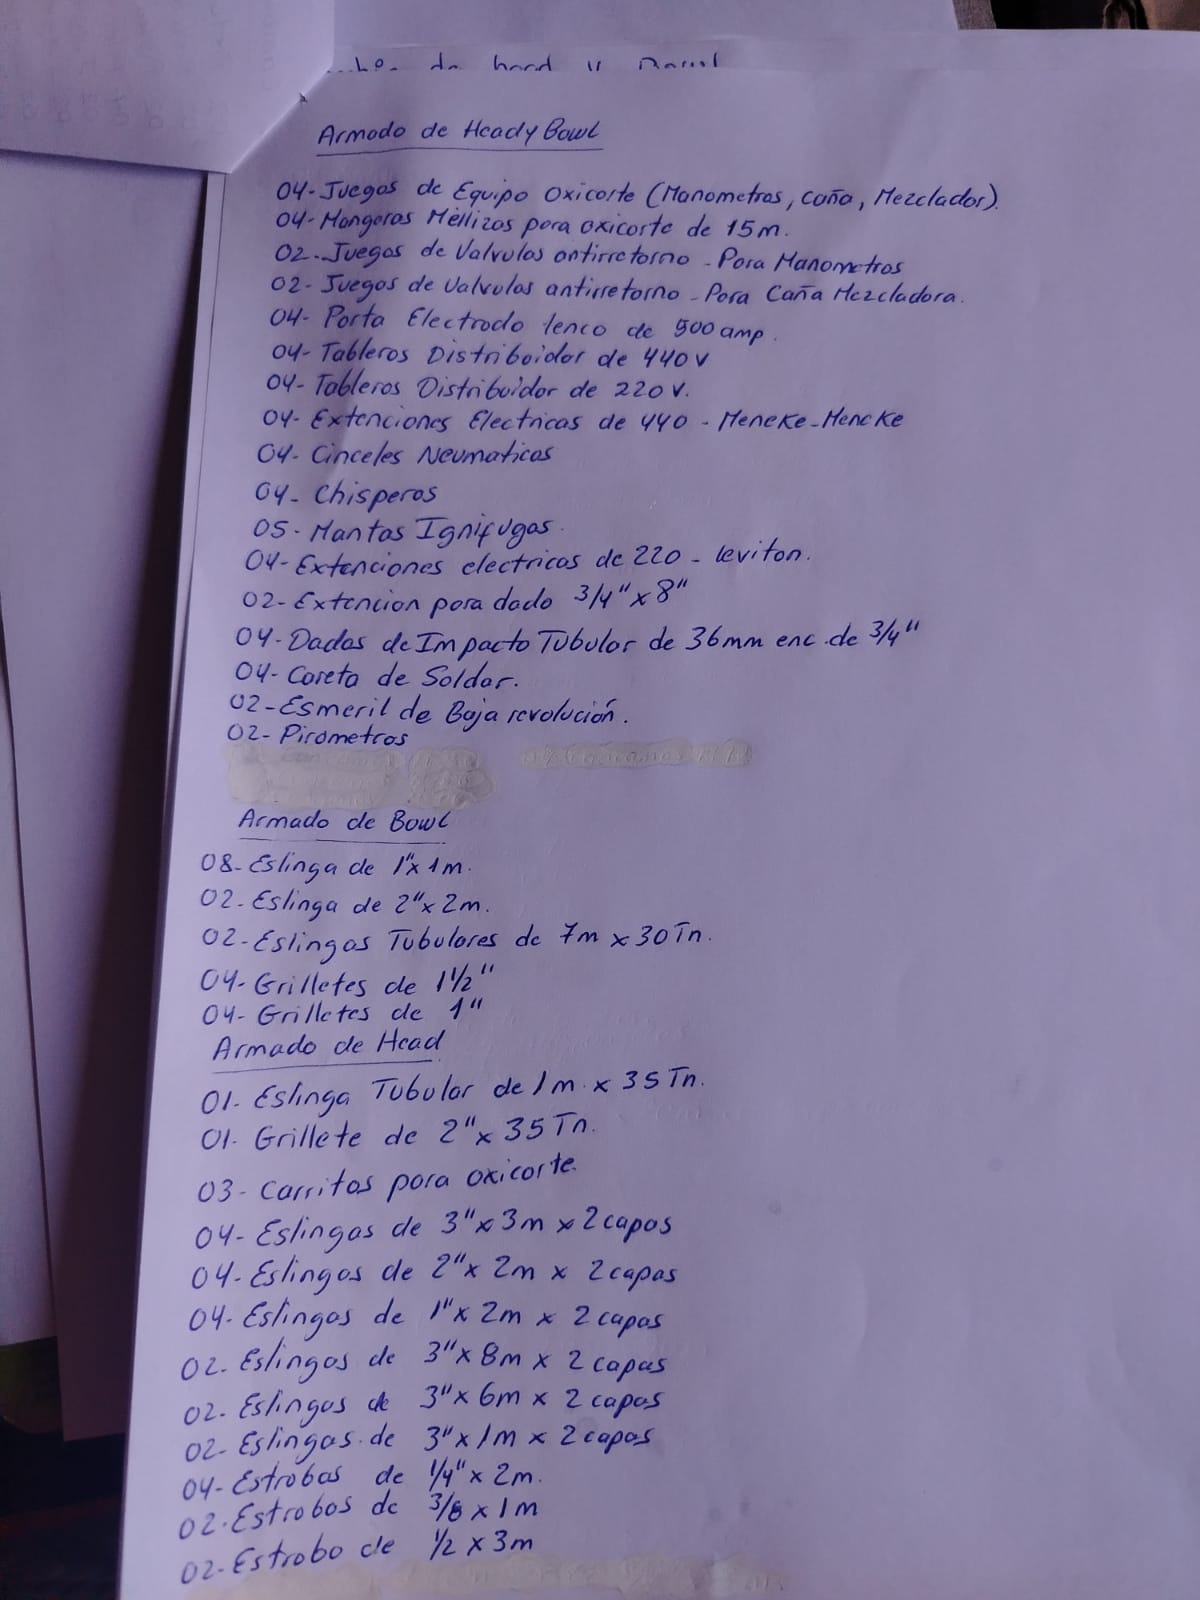 Armado de Head y Bowl
04- Juegos de Equipo Oxicorte (Manometros, caña, Mezclador).
04- Mangeras Mellizas para oxicorte de 15m.
02- Juegos de Valvulas antirretorno - Para Manometros
02- Juegos de Valvulas antirretorno - Para Caña Mezcladora.
04- Porta Electrodo lenco de 500 amp.
04- Tableros Distribuidor de 440 v
04- Tableros Distribuidor de 220 v.
04- Extenciones Electricas de 440 - Meneke - Meneke
04- Cinceles Neumaticos
04- Chisperos
05- Mantas Ignifugas.
04- Extenciones electricas de 220 - leviton.
02- Extencion para dado 3/4" x 8"
04- Dados de Impacto Tubular de 36mm enc. de 3/4"
04- Careta de Soldar.
02- Esmeril de Baja revolución.
02- Pirometros
Armado de Bowl
08- Eslinga de 1" x 1m.
02- Eslinga de 2" x 2m.
02- Eslingas Tubulares de 7m x 30 Tn.
04- Grilletes de 1 1/2"
04- Grilletes de 1"
Armado de Head
01- Eslinga Tubular de 1m x 35 Tn.
01- Grillete de 2" x 35 Tn.
03- Carritos para oxicorte.
04- Eslingas de 3" x 3m x 2 capas
04- Eslingas de 2" x 2m x 2 capas
04- Eslingas de 1" x 2m x 2 capas
02- Eslingas de 3" x 8m x 2 capas
02- Eslingas de 3" x 6m x 2 capas
02- Eslingas de 3" x 1m x 2 capas
04- Estrobos de 1/4" x 2m.
02- Estrobos de 3/8 x 1m
02- Estrobo de 1/2 x 3m